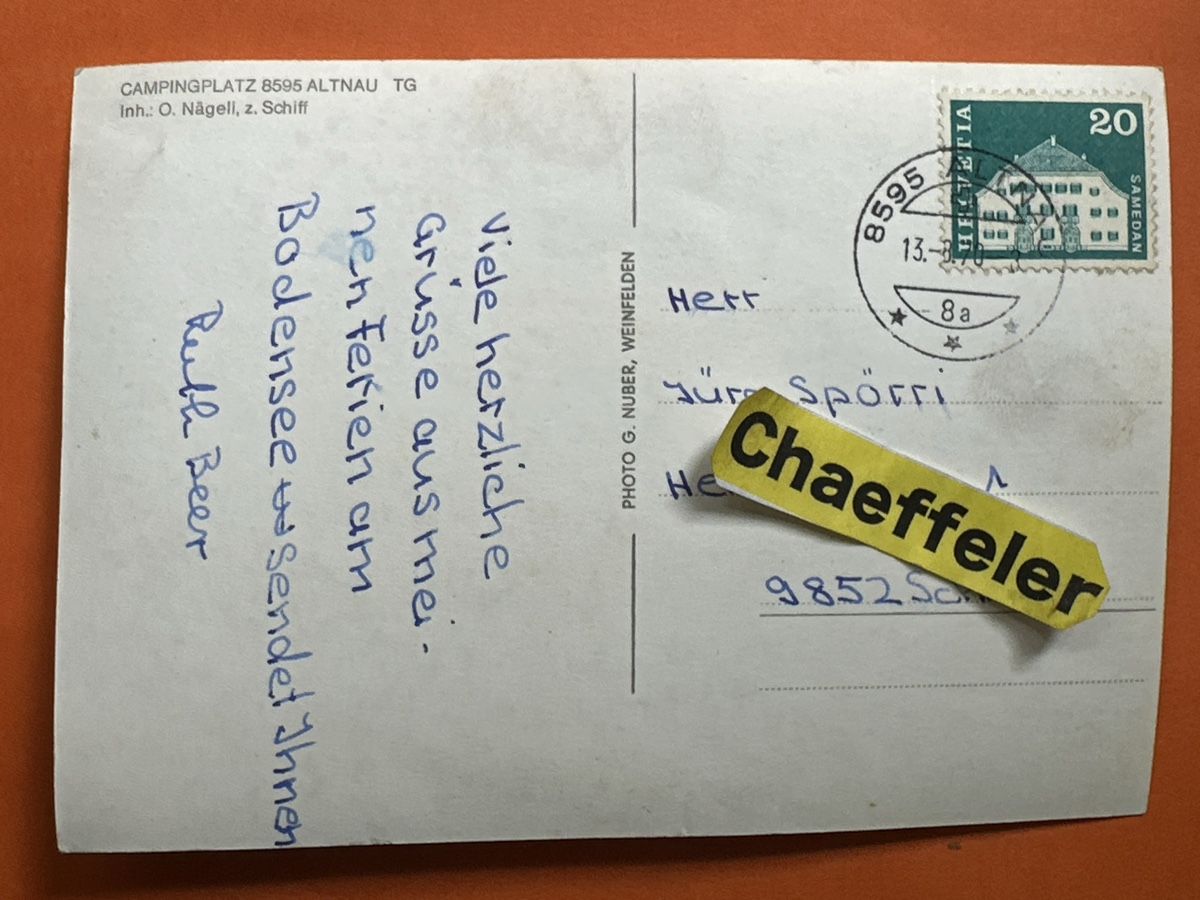 CAMPINGPLATZ 8595 ALTNAU TG
Inh.: O. Nägeli, z. Schiff
Viele herzliche
Grüsse aus mei-
nen Ferien am
Bodensee sendet Ihnen
Ruth Beer
PHOTO G. NUBER, WEINFELDEN
HELVETIA
20
SAMEDAN
8595 ALTNAU
13.-8.70-
8a
Herr
Jürg Spörri
1
9852
Chaeffeler